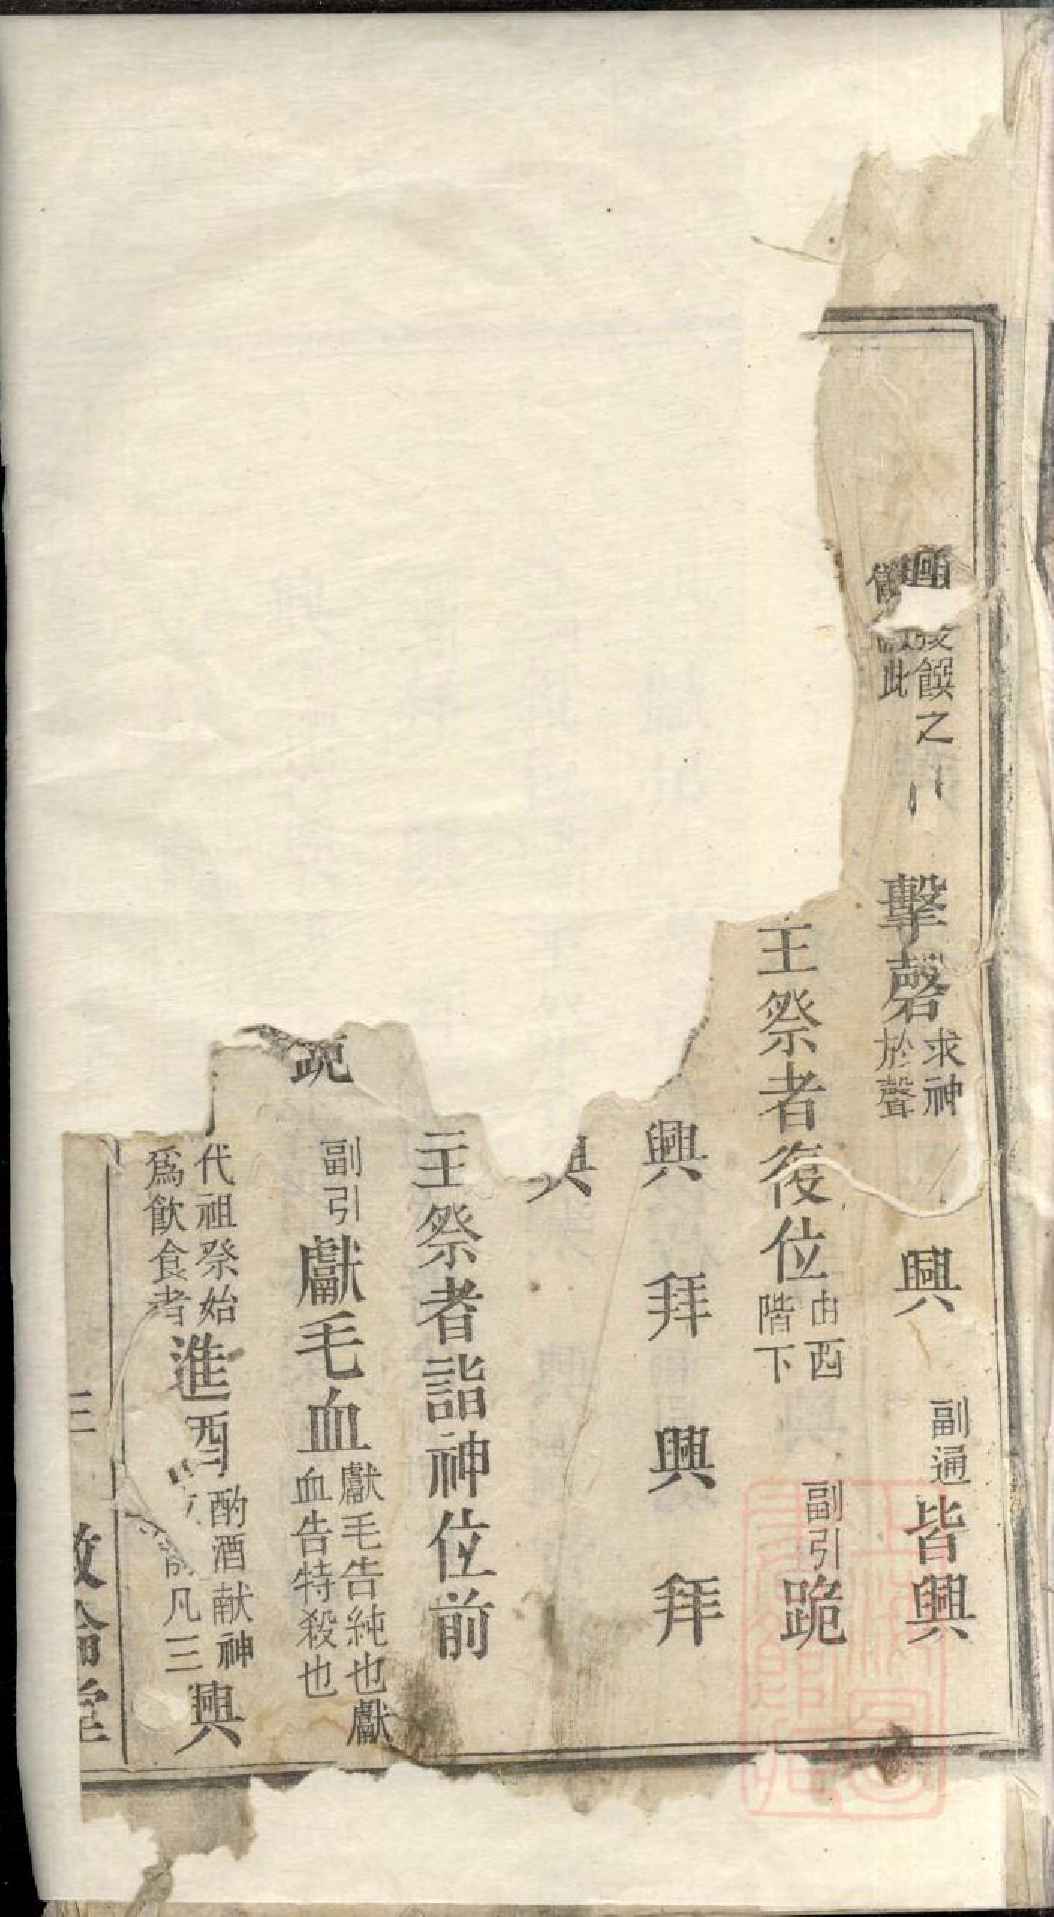 饌之此擊磬求神於聲興副通皆興
主祭者復位由西階下副引跪
興拜興拜
興
主祭者詣神位前
跪副引獻毛血獻毛告純也獻血告特殺也
代祖祭始爲飲食者進酒酌酒献神凡三興
三 敦倫堂